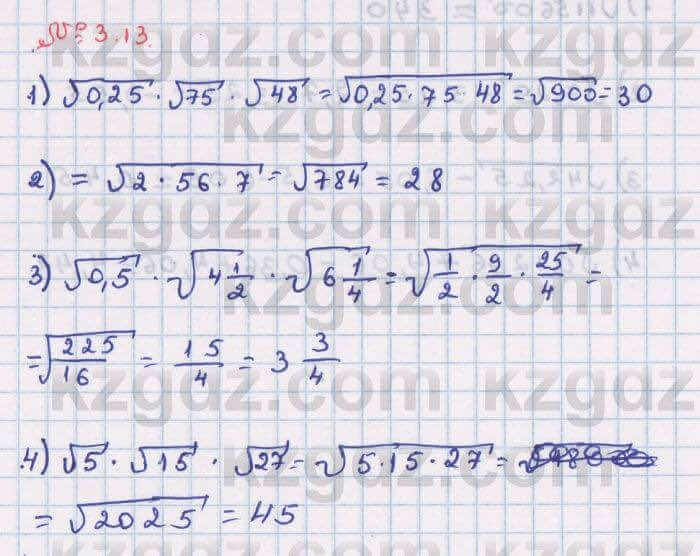 № 3.13.
1) √0,25 · √75 · √48 = √0,25 · 75 · 48 = √900 = 30
2) = √2 · 56 · 7 = √784 = 28
3) √0,5 · √4 1/2 · √6 1/4 = √1/2 · 9/2 · 25/4 =
= √225/16 = 15/4 = 3 3/4
4) √5 · √15 · √27 = √5 · 15 · 27 =
= √2025 = 45
kzgdz.com
kzgdz.com
kzgdz.com
kzgdz.com
kzgdz.com
kzgdz.com